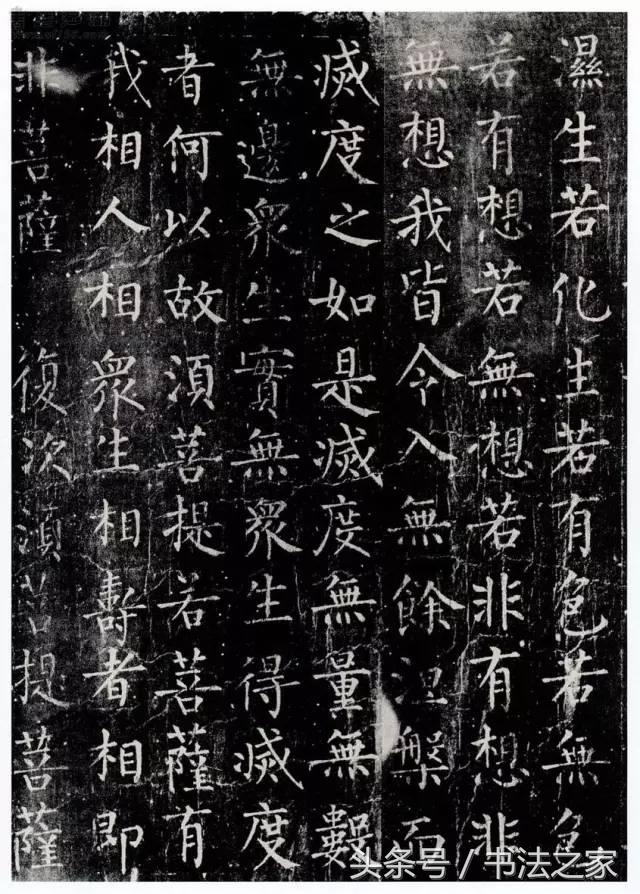 濕生若化生若有色若無色
若有想若無想若非有想非
無想我皆令入無餘涅槃而
滅度之如是滅度無量無數
無邊衆生實無衆生得滅度
者何以故須菩提若菩薩有
我相人相衆生相壽者相即
非菩薩 復次須菩提菩薩
头条号 / 书法之家